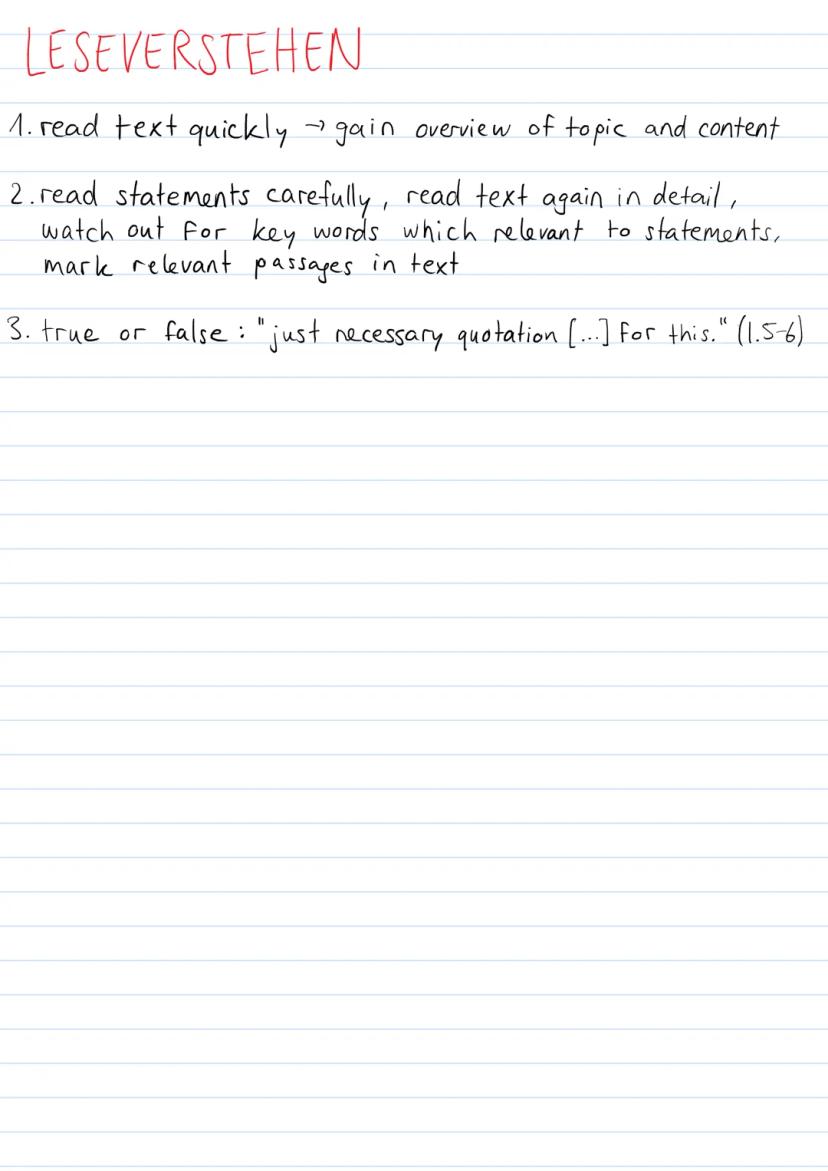 LESEVERSTEHEN
1. read text quickly → gain overview of topic and content
2. read statements carefully, read text again in detail,
watch out for key words which relevant to statements,
mark relevant passages in text
3. true or false: "just necessary quotation [...] for this." (l.5-6)